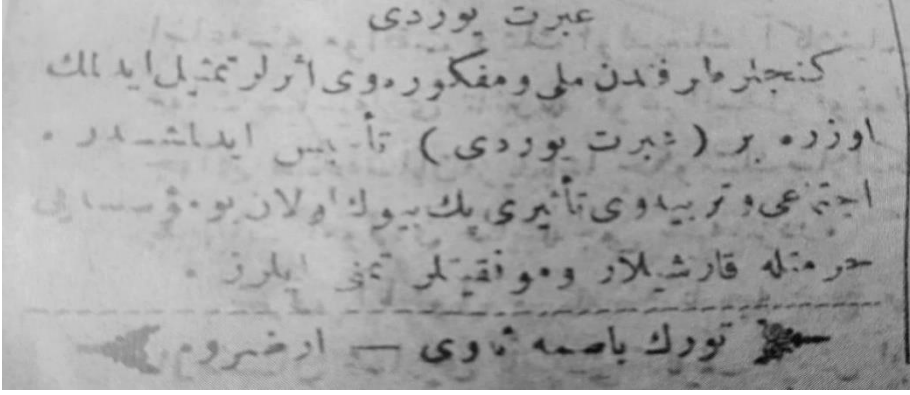 عبرت يوردى
كنجلر طرفندن ملى و مفكوره وى اثرلر تمثيل ايدلمك
اوزره بر ( عبرت يوردى ) تأسيس ايدلمشدر .
اجتماعى و تربيه وى تأثيرى پك بيوك اولان بو مؤسسه يى
حرمتله قارشيلار و موفقيتلر تمنى ايلرز .
تورك باصمه ئاوى — ارضروم